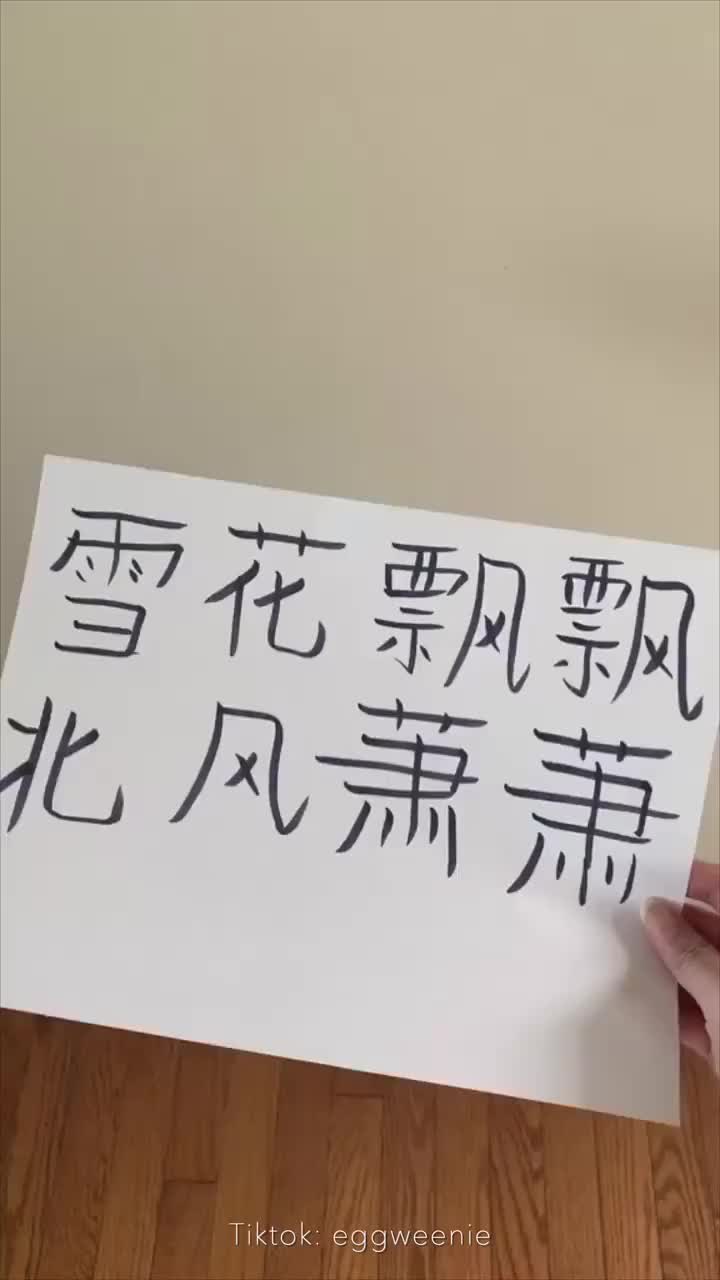 雪花飘飘
北风萧萧
Tiktok: eggweenie